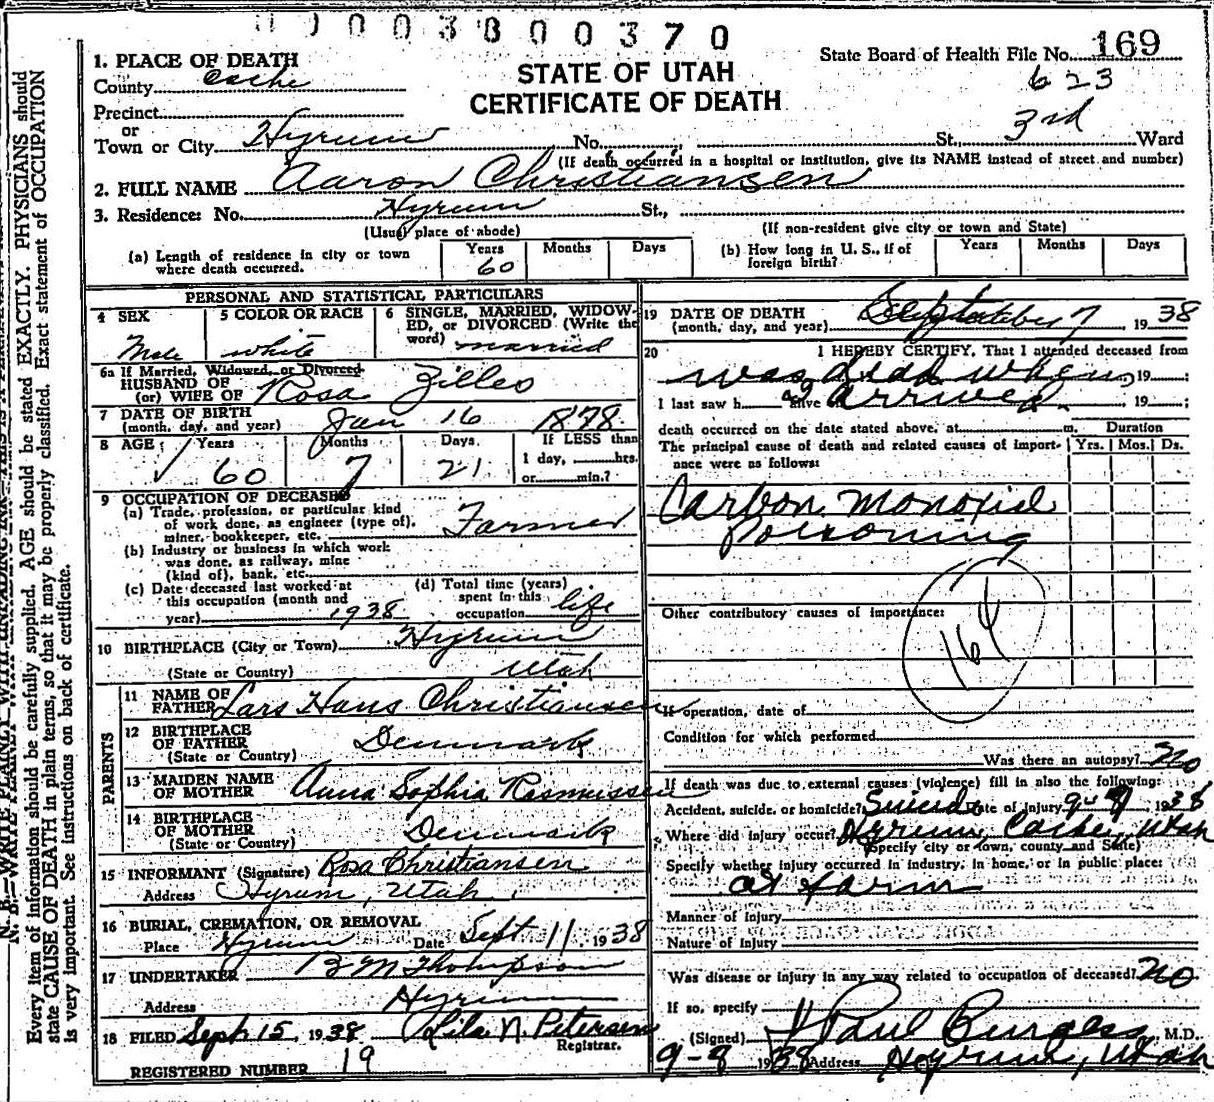 0003800370
State Board of Health File No. 169
623
STATE OF UTAH
CERTIFICATE OF DEATH
1. PLACE OF DEATH
County Cache
Precinct
or
Town or City Hyrum No. St., 3rd Ward
(If death occurred in a hospital or institution, give its NAME instead of street and number)
2. FULL NAME Aaron Christiansen
3. Residence: No. Hyrum St.,
(Usual place of abode) (If non-resident give city or town and State)
(a) Length of residence in city or town where death occurred. Years 60 Months Days
(b) How long in U. S., if of foreign birth? Years Months Days
PERSONAL AND STATISTICAL PARTICULARS
4 SEX Male
5 COLOR OR RACE white
6 SINGLE, MARRIED, WIDOWED, or DIVORCED (Write the word) married
6a If Married, Widowed, or Divorced
HUSBAND OF
(or) WIFE OF Rosa Zilles
7 DATE OF BIRTH
(month, day, and year) Jan 16 1878
8 AGE Years 60 Months 7 Days 21
If LESS than
1 day, hrs.
or min.?
9 OCCUPATION OF DECEASED
(a) Trade, profession, or particular kind
of work done, as engineer (type of),
miner, bookkeeper, etc. Farmer
(b) Industry or business in which work
was done, as railway, mine
(kind of), bank, etc.
(c) Date deceased last worked at
this occupation (month and
year) 1938
(d) Total time (years)
spent in this
occupation life
10 BIRTHPLACE (City or Town) Hyrum
(State or Country) Utah
PARENTS
11 NAME OF
FATHER Lars Hans Christiansen
12 BIRTHPLACE
OF FATHER Denmark
(State or Country)
13 MAIDEN NAME
OF MOTHER Anna Sophia Rasmussen
14 BIRTHPLACE
OF MOTHER Denmark
(State or Country)
15 INFORMANT (Signature) Rosa Christiansen
Address Hyrum, Utah
16 BURIAL, CREMATION, OR REMOVAL
Place Hyrum Date Sept 11 1938
17 UNDERTAKER B M Thompson
Address Hyrum
18 FILED Sept 15, 1938 Lila N. Petersen
Registrar.
REGISTERED NUMBER 19
19 DATE OF DEATH
(month, day, and year) September 7 1938
20 I HEREBY CERTIFY, That I attended deceased from
was dead when, 19 ;
I last saw h alive on I arrived, 19 ;
death occurred on the date stated above, at m.
The principal cause of death and related causes of importance were as follows:
Duration
Yrs. Mos. Ds.
Carbon Monoxid
Poisoning
Other contributory causes of importance:
164
If operation, date of
Condition for which performed
Was there an autopsy? No
If death was due to external causes (violence) fill in also the following:
Accident, suicide, or homicide? Suicide Date of Injury 9-7 1938
Where did injury occur? Hyrum, Cache, Utah
(Specify city or town, county and State)
Specify whether injury occurred in industry, in home, or in public place:
at farm
Manner of Injury
Nature of Injury
Was disease or injury in any way related to occupation of deceased? No
If so, specify
(Signed) Paul Burgess, M.D.
9-8 1938 Address Hyrum, Utah
Every item of information should be carefully supplied. AGE should be stated EXACTLY. PHYSICIANS should
state CAUSE OF DEATH in plain terms, so that it may be properly classified. Exact statement of OCCUPATION
is very important. See instructions on back of certificate.